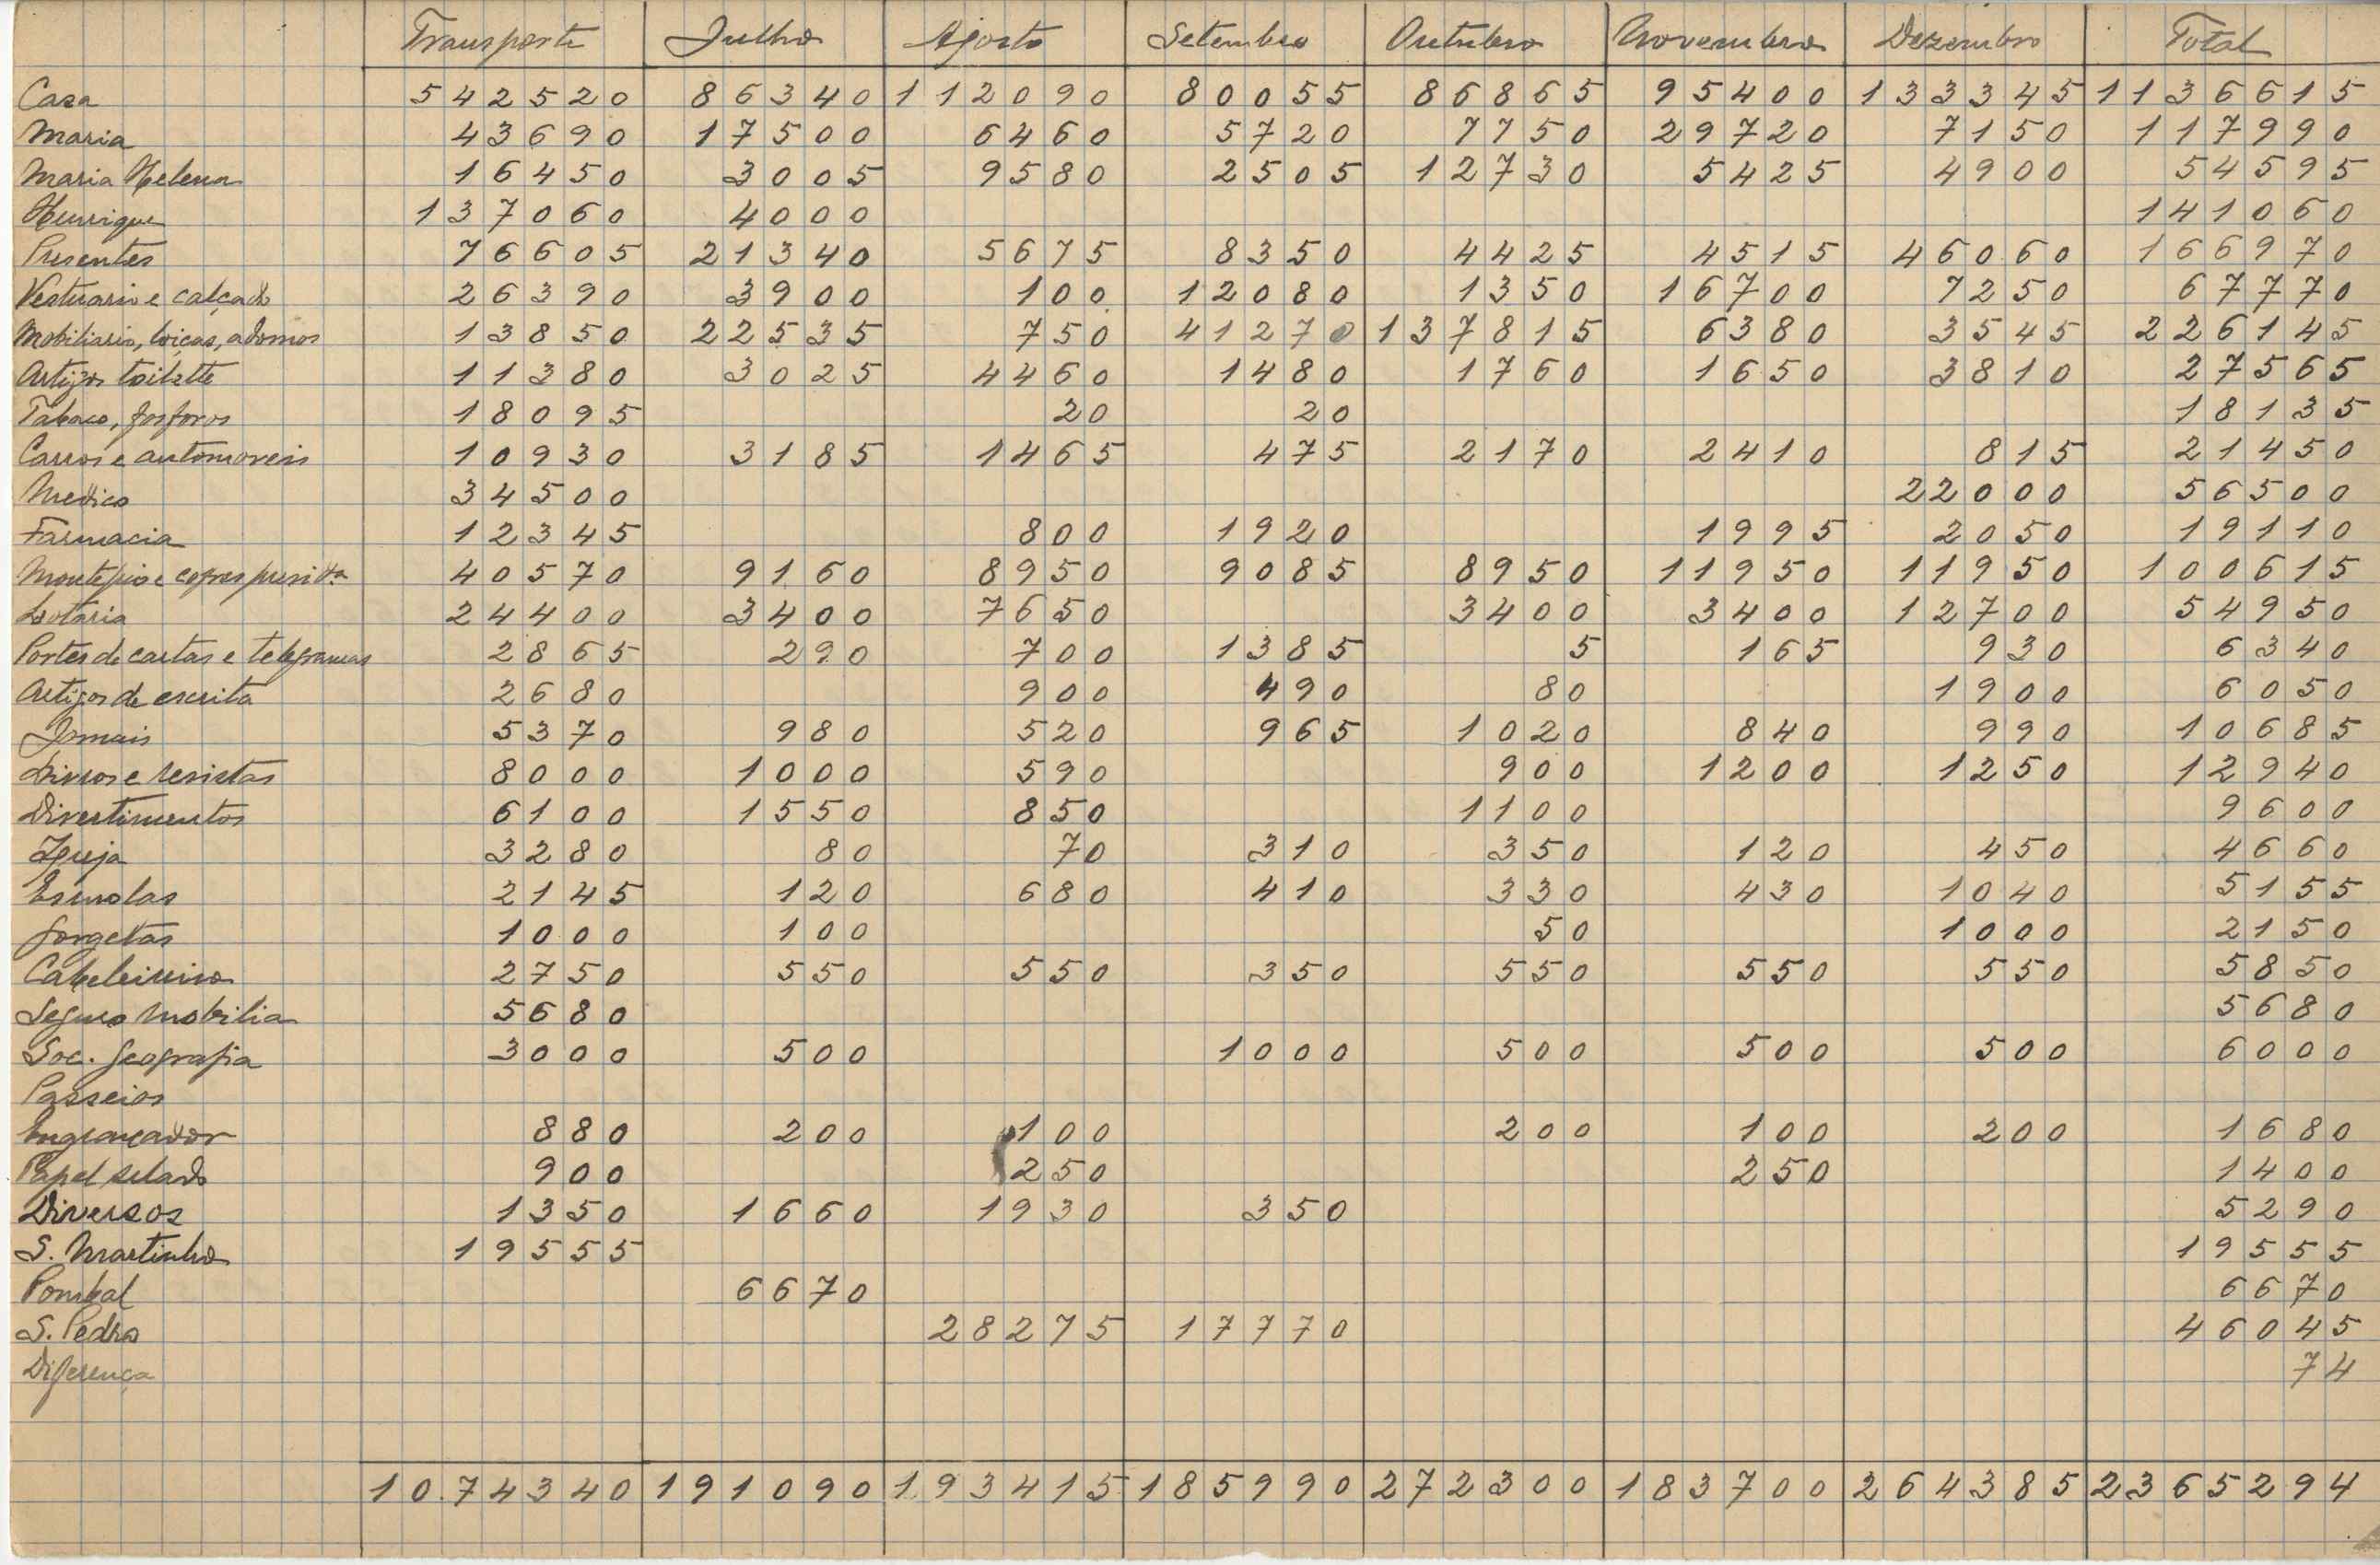 Transporte Julho Agosto Setembro Outubro Novembro Dezembro Total
Casa 542520 86340 112090 80055 86865 95400 133345 1136615
Maria 43690 17500 6460 5720 7750 29720 7150 117990
Maria Helena 16450 3005 9580 2505 12730 5425 4900 54595
Henrique 137060 4000 141060
Presentes 76605 21340 5675 8350 4425 4515 46060 166970
Vestuario e calçado 26390 3900 100 12080 1350 16700 7250 67770
Mobiliario, loiças, adornos 13850 22535 750 41270 137815 6380 3545 226145
Artigos toilette 11380 3025 4460 1480 1760 1650 3810 27565
Tabaco, fosforos 18095 20 20 18135
Carros e automoveis 10930 3185 1465 475 2170 2410 815 21450
Medico 34500 22000 56500
Farmacia 12345 800 1920 1995 2050 19110
Montepio e cofres 40570 9160 8950 9085 8950 11950 11950 100615
Lotaria 24400 3400 7650 3400 3400 12700 54950
Portes de cartas e telegramas 2865 290 700 1385 5 165 930 6340
Artigos de escrita 2680 900 490 80 1900 6050
Jornais 5370 980 520 965 1020 840 990 10685
Livros e revistas 8000 1000 590 900 1200 1250 12940
Divertimentos 6100 1550 850 1100 9600
Igreja 3280 80 70 310 350 120 450 4660
Esmolas 2145 120 680 410 330 430 1040 5155
Gorgetas 1000 100 50 1000 2150
Cabeleireiro 2750 550 550 350 550 550 550 5850
Seguro Mobilia 5680 5680
Soc. Geografia 3000 500 1000 500 500 500 6000
Passeios
Engraxador 880 200 100 200 100 200 1680
Papel selado 900 250 250 1400
Diversos 1350 1660 1930 350 5290
S. Martinho 19555 19555
Pombal 6670 6670
S. Pedro 28275 17770 46045
Diferença 74
10.74340 191090 193415 185990 272300 183700 264385 2365294